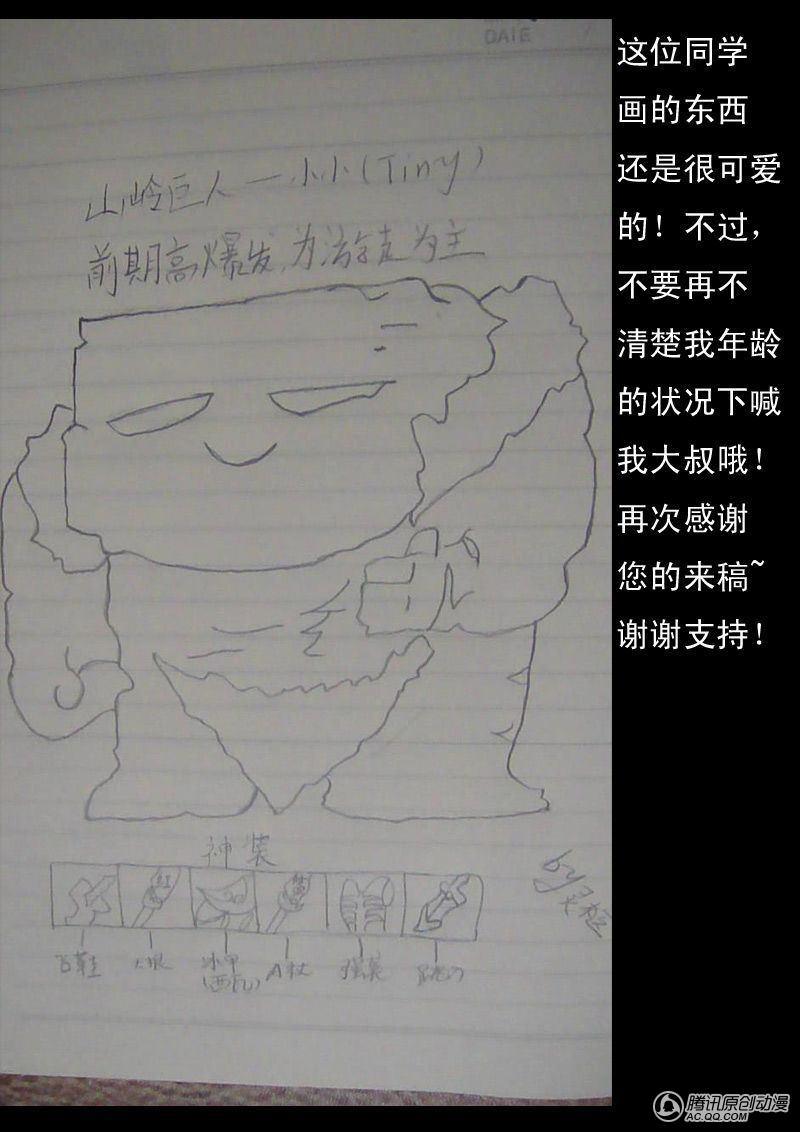 DATE
山岭巨人一小小(Tiny)
前期高爆发,为法走为主
神装
飞鞋
大根
冰甲
(西瓦)
A杖
强袭
跳刀
by
这位同学
画的东西
还是很可爱
的！不过，
不要再不
清楚我年龄
的状况下喊
我大叔哦！
再次感谢
您的来稿~
谢谢支持！
腾讯原创动漫
AC.QQ.COM